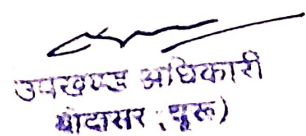 उपखण्ड अधिकारी
बीदासर (चूरू)